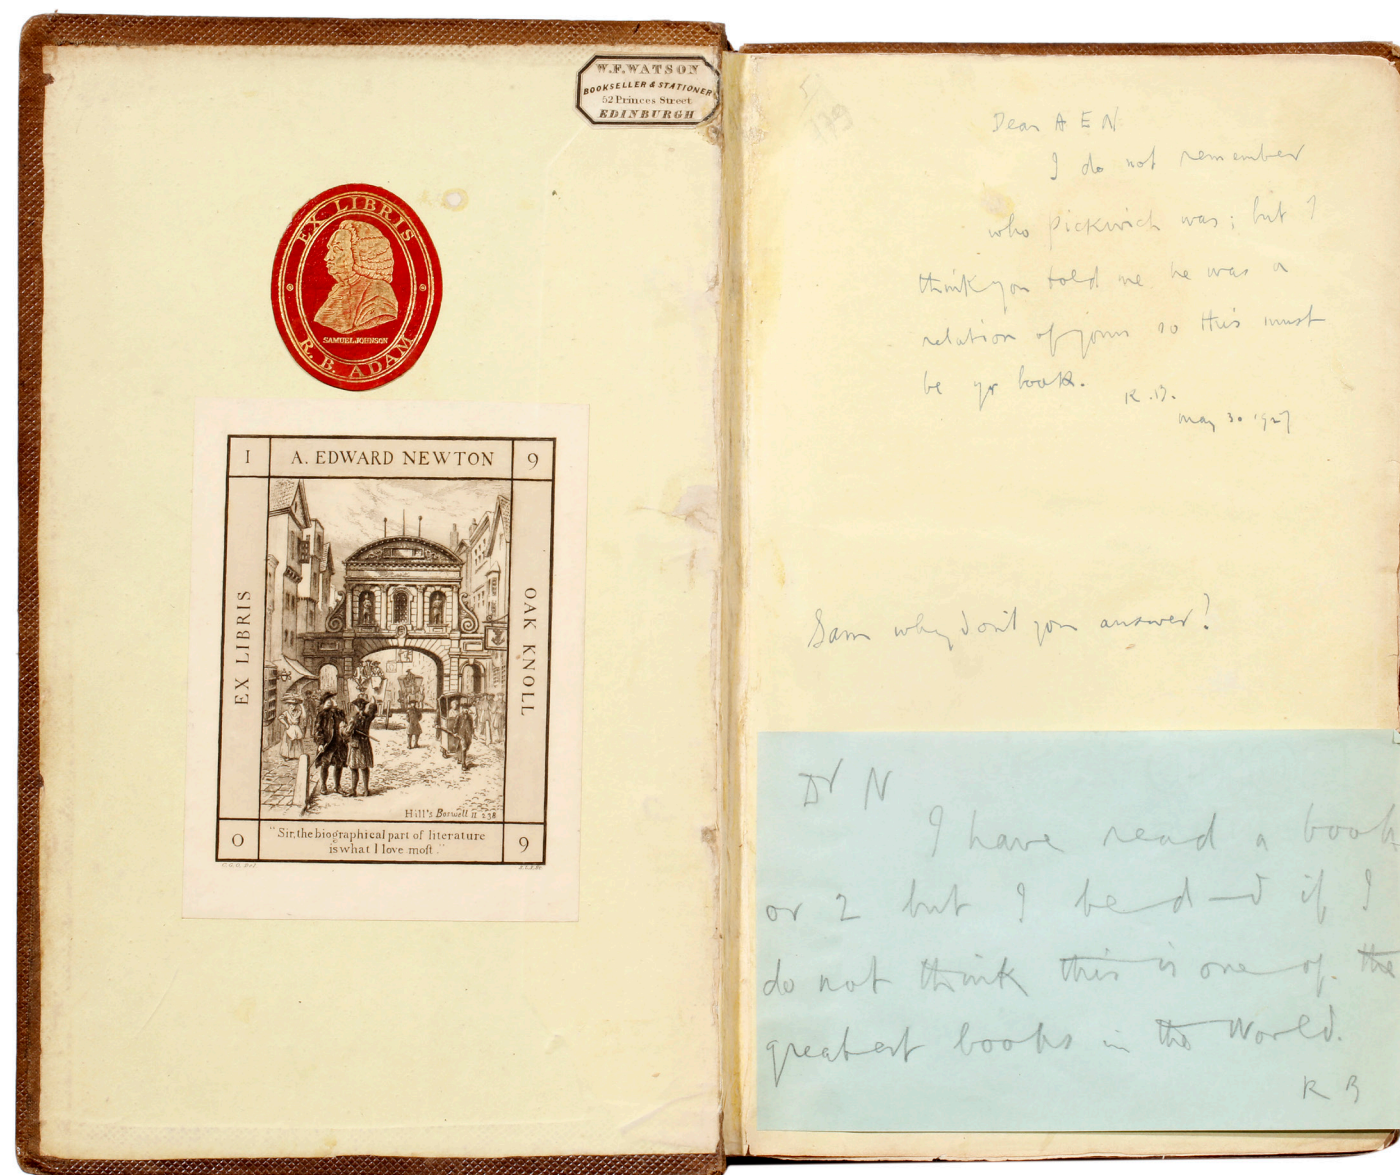 W.F.WATSON
BOOKSELLER & STATIONER
52 Princes Street
EDINBURGH
EX LIBRIS
SAMUEL JOHNSON
R. B. ADAM
I
A. EDWARD NEWTON
9
EX LIBRIS
OAK KNOLL
Hill's Boswell II 238
O
"Sir, the biographical part of literature
is what I love most."
9
Dear A E N
I do not remember
who Pickwick was; but I
think you told me he was a
relation of yours so this must
be yr book.
R.B.
May 30 1927
Sam why don't you answer?
Dr N
I have read a book
or 2 but I be d—d if I
do not think this is one of the
greatest books in the World.
R B